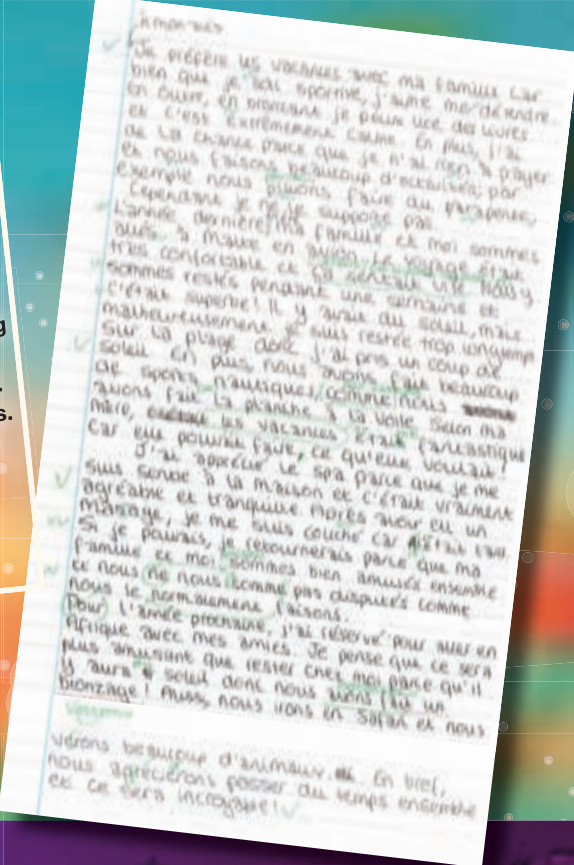 Je préfère les vacances avec ma famille car
bien que je sois sportive, j'aime me détendre.
En outre, en bronzant je peux lire des livres
et c'est extrêmement calme. En plus, j'ai
de la chance parce que je n'ai rien à payer
et nous faisons beaucoup d'activités, par
exemple nous faire du parapente,
cependant je ne le supporte pas.
L'année dernière, ma famille et moi sommes
allés à Malte en avion. Le voyage était
très confortable et vite. Nous y
sommes restés pendant une semaine et
c'était superbe! Il y avait du soleil, mais
malheureusement, je suis restée trop longtemps
sur la plage donc j'ai pris un coup de
soleil. En plus nous avons fait beaucoup
de sports nautiques, comme nous
avons fait la planche à la voile. Selon ma
mère, les vacances était fantastique
car elle pouvait faire, ce qu'elle voulait!
J'ai apprécié le spa parce que je me
suis sentie à la maison et c'était vraiment
agréable et tranquille. Après avoir eu un
massage, je me suis couché car
Si je pouvais, je retournerais parce que ma
famille et moi sommes bien amusés ensemble
et nous ne nous somme pas disputés comme
nous le normalement faisons.
Pour l'année prochaine, j'ai réservé pour aller en
Afrique avec mes amies. Je pense que ce sera
plus amusant que rester chez moi parce qu'il
y aura soleil donc nous un
bronzage! Aussi, nous irons en safari et nous
verons beaucoup d'animaux. En bref,
nous apprécierons passer du temps ensemble
et ce sera incroyable!